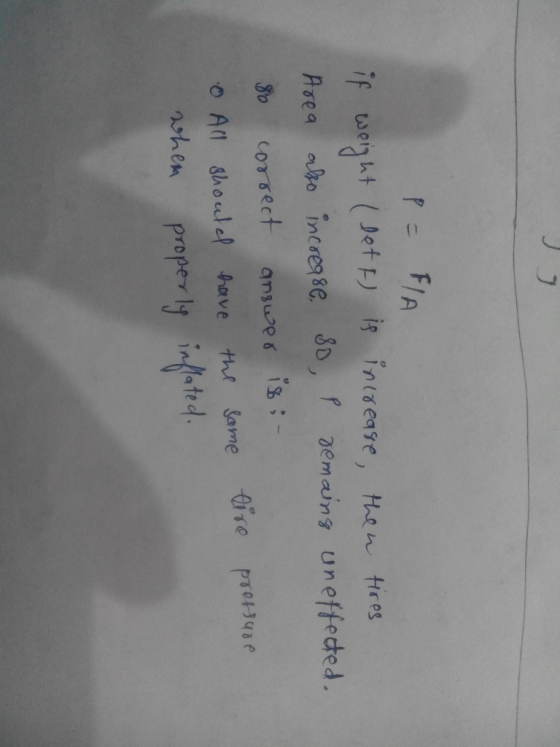 P = F/A
if weight (let F) is increase, then tires
Area also increase. So, P remains uneffected.
So correct answer is :-
o All should have the same tire pressure
when properly inflated.